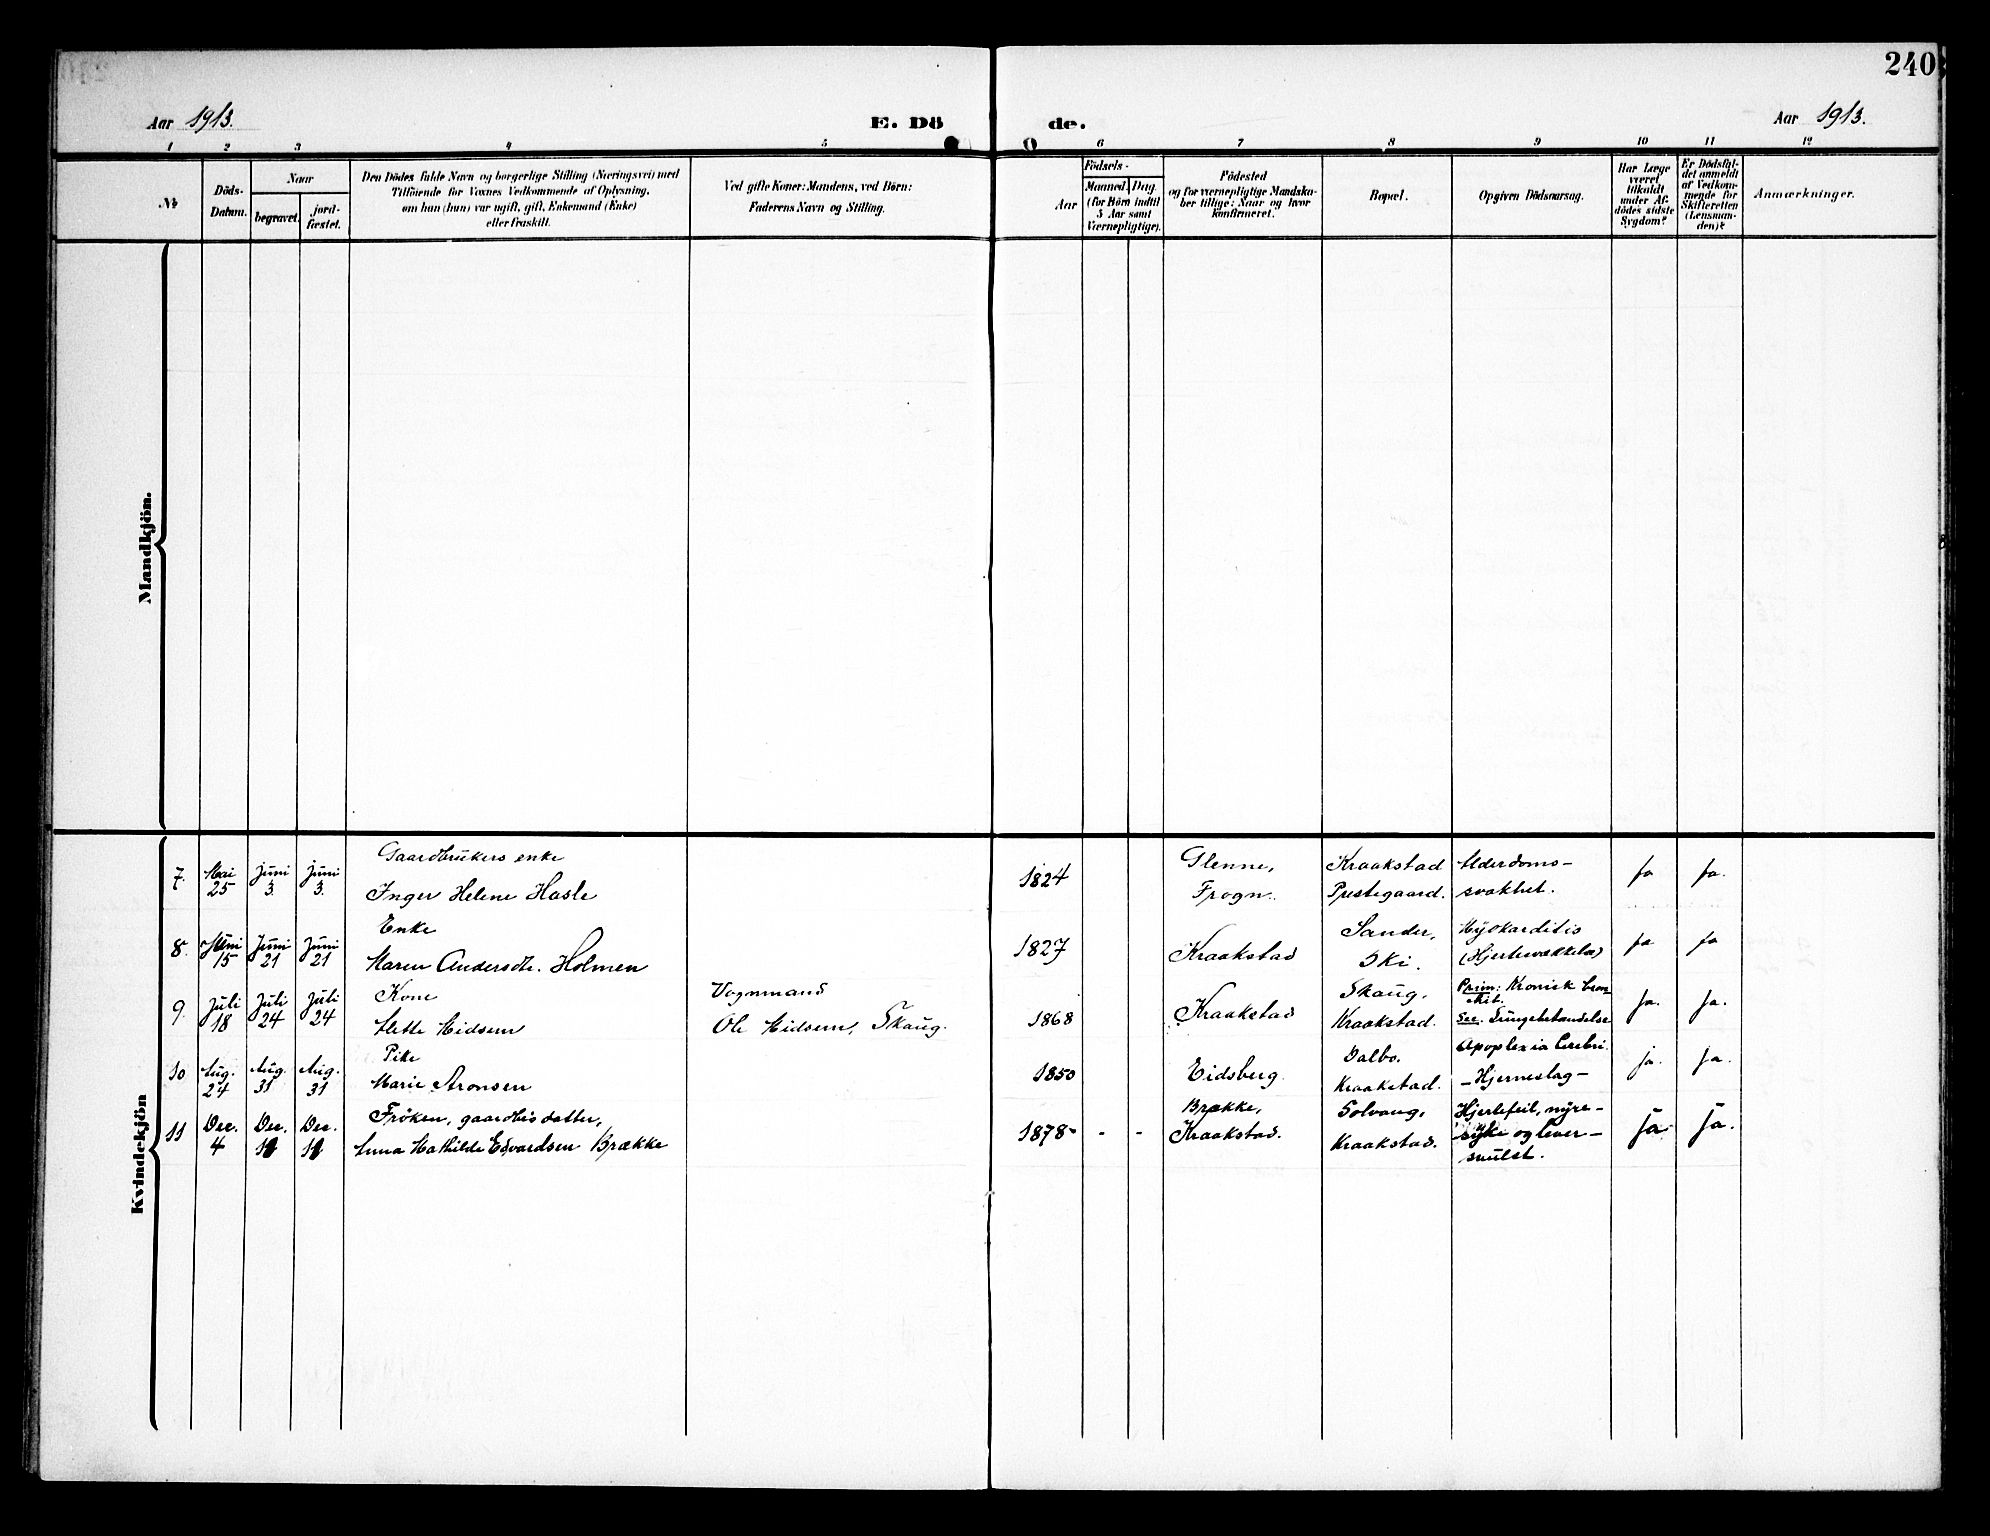 240
Aar 1913.
E. Dö
de.
Aar 1913.
1 2 3 4 5 6 7 8 9 10 11 12
№
Döds-
Datum.
Naar
begravet.
jord-
fæstet.
Den Dödes fulde Navn og borgerlige Stilling (Næringsvei) med
Tilföiende for Voxnes Vedkommende af Oplysning,
om han (hun) var ugift, gift, Enkemand (Enke)
eller fraskilt.
Ved gifte Koner: Mandens, ved Börn:
Faderens Navn og Stilling.
Födsels-
Aar
Maaned Dag
(for Börn indtil
5 Aar samt
Værnepligtige).
Födested
og for værnepligtige Mandska-
ber tillige: Naar og hvor
konfirmeret.
Bopæl.
Opgiven Dödsaarsag.
Har Læge
været
tilkaldt
under Af-
dödes sidste
Sygdom?
Er Dödsfal-
det anmeldt
af Vedkom-
mende for
Skifteretten
(Lensman-
den)?
Anmærkninger.
Mandkjön.
Kvindekjön
7. Mai 25 Juni 3. Juni 3.
Gaardbrukers enke
Inger Helene Hasle
1824
Glenne,
Frogn.
Kraakstad
Prestegaard.
Alderdoms-
svakhet.
ja ja.
8. Juni 15 Juni 21 Juni 21
Enke
Maren Andersdtr. Holmen
1827
Kraakstad
Sander,
Ski.
Myokarditis
(Hjertesvækkelse)
ja ja
9. Juli 18 Juli 24 Juli 24
Kone
Mette Eidsem
Vognmand
Ole Eidsem, Skaug.
1868
Kraakstad
Skaug,
Kraakstad.
Prim: Kronisk bron-
kit.
Sec. Lungebetændelse
ja. ja.
10 Aug. 24 Aug. 31 Aug. 31
Pike
Marie Aronsen
1850
Eidsberg.
Dalbo.
Kraakstad.
Apoplexia Cerebri.
- Hjerneslag -
ja. ja.
11 Dec. 4 Dec. Dec.
Frøken, gaardbr.s datter,
Anna Mathilde Edvardsen Brække
1878- - -
Brække,
Kraakstad.
Solvang,
Kraakstad.
Hjertefeil, nyre-
syke og lever-
svulst.
ja. ja.